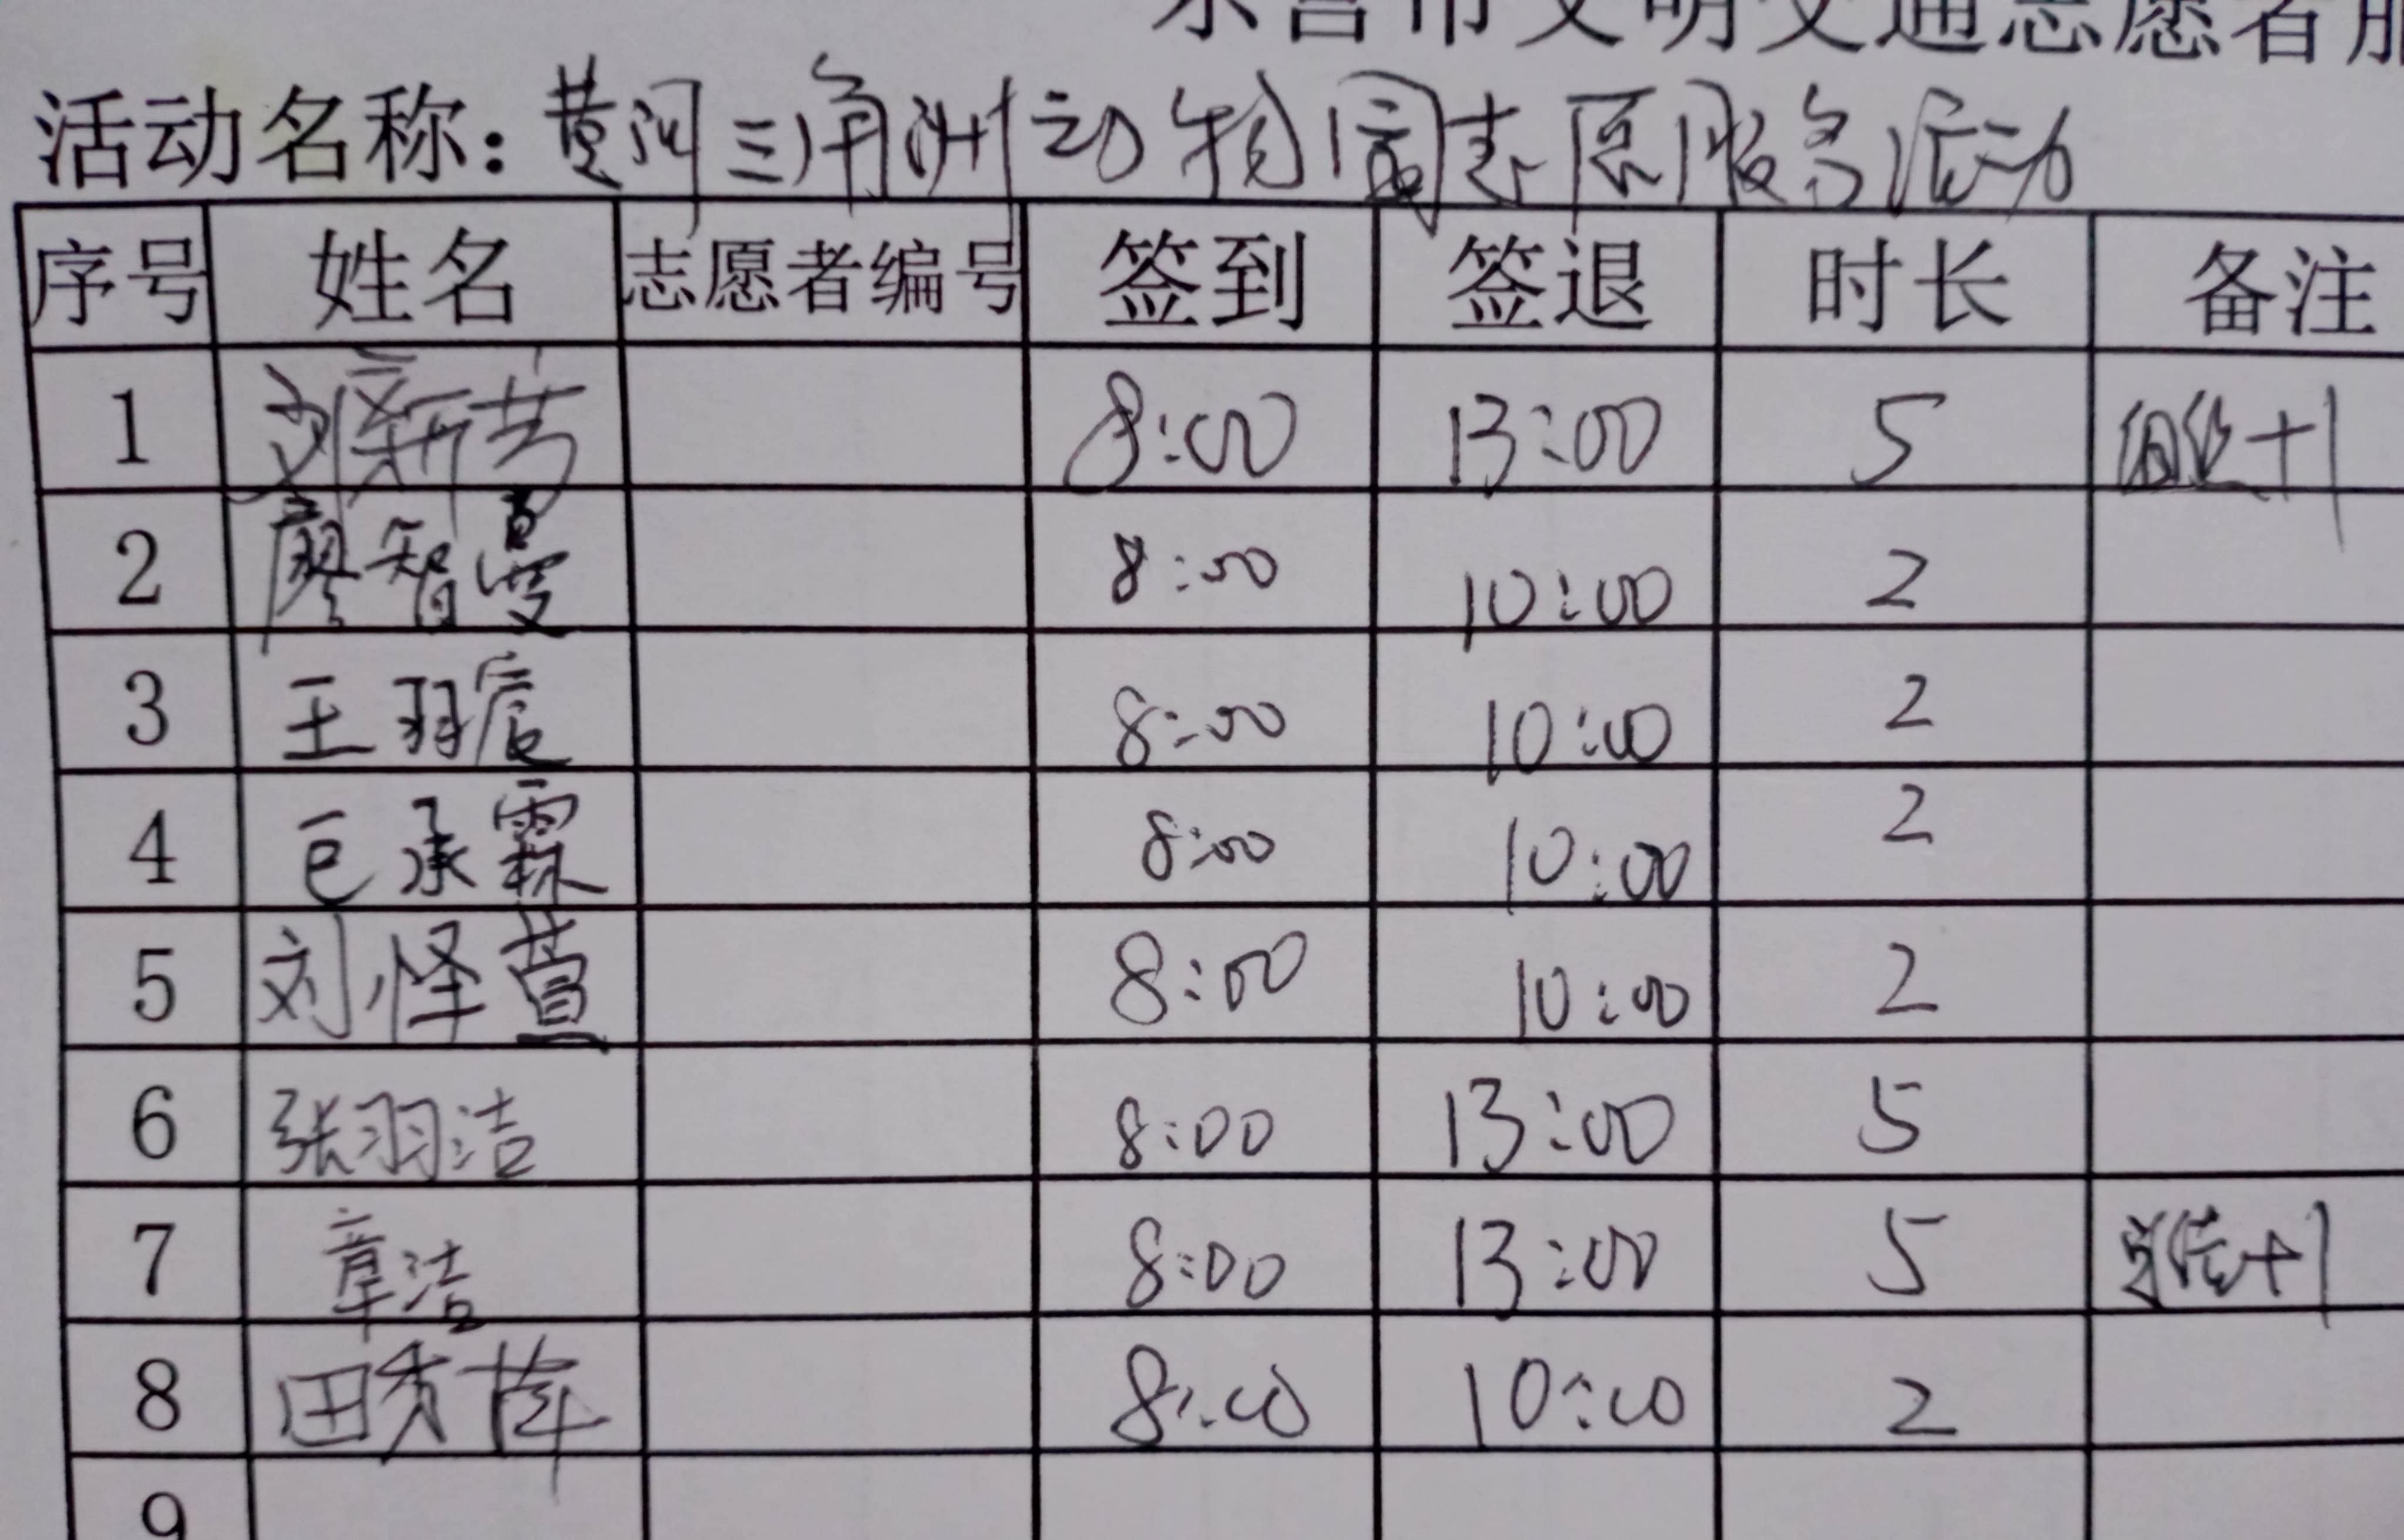 东营市文明交通志愿者服
活动名称：黄河三角洲动物园志愿服务活动
序号 姓名 志愿者编号 签到 签退 时长 备注
1 刘新芳 8:00 13:00 5 +1
2 廖智曼 8:00 10:00 2
3 王羽宸 8:00 10:00 2
4 巴承霖 8:00 10:00 2
5 刘怿萱 8:00 10:00 2
6 张羽洁 8:00 13:00 5
7 章洁 8:00 13:00 5 +1
8 田秀萍 8:00 10:00 2
9